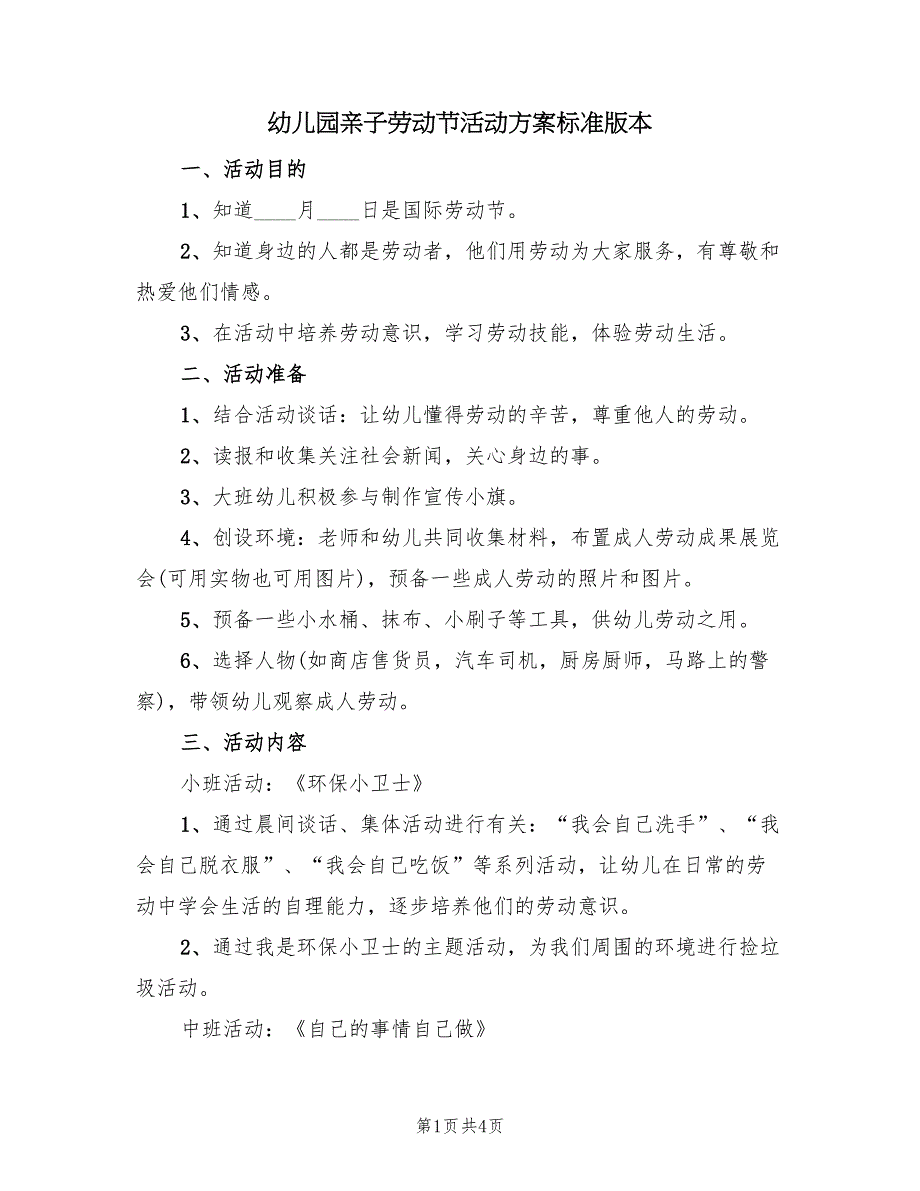 幼儿园亲子劳动节活动方案标准版本
一、活动目的
1、知道____月____日是国际劳动节。
2、知道身边的人都是劳动者，他们用劳动为大家服务，有尊敬和
热爱他们情感。
3、在活动中培养劳动意识，学习劳动技能，体验劳动生活。
二、活动准备
1、结合活动谈话：让幼儿懂得劳动的辛苦，尊重他人的劳动。
2、读报和收集关注社会新闻，关心身边的事。
3、大班幼儿积极参与制作宣传小旗。
4、创设环境：老师和幼儿共同收集材料，布置成人劳动成果展览
会(可用实物也可用图片)，预备一些成人劳动的照片和图片。
5、预备一些小水桶、抹布、小刷子等工具，供幼儿劳动之用。
6、选择人物(如商店售货员，汽车司机，厨房厨师，马路上的警
察)，带领幼儿观察成人劳动。
三、活动内容
小班活动：《环保小卫士》
1、通过晨间谈话、集体活动进行有关：“我会自己洗手”、“我
会自己脱衣服”、“我会自己吃饭”等系列活动，让幼儿在日常的劳
动中学会生活的自理能力，逐步培养他们的劳动意识。
2、通过我是环保小卫士的主题活动，为我们周围的环境进行捡垃
圾活动。
中班活动：《自己的事情自己做》
第1页 共4页